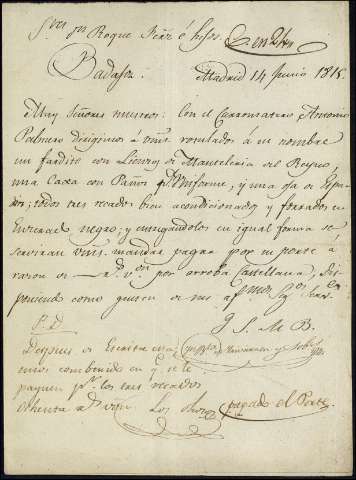 Sres. Dn Roque Frrz é hijos.
Badajoz.
Madrid 14 Junio 1815.
Muy Señores nuestros: Con el Carromatero Antonio
Palmero dirigimos á vms rotulados á su nombre
un fardito con Lienzos de Mantelería del Reyno,
una Caxa con Paños Uniforme, y una de
tres; todos tres recados bien acondicionados y forrados en
Encerado negro; y entregandolos en igual forma se
serviran vms. mandar pagar por su porte á
razon de rs. von por arroba Castellana, dis
poniendo como gusten de sus afmos Sqros Servres
Q. S. M. B.
P.D.
Despues de Escrita esta
emos combenido en q. se le
paguen pr. los tres recados
ochenta rs. von Los dhos
pagado el Porte